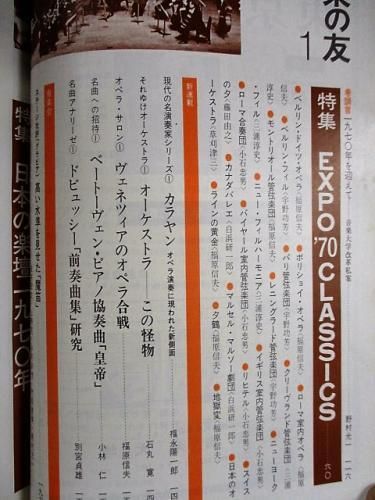 の友
1
一九七〇年を迎えて 音楽大学改革私案 野村光一 一一六
特集 EXPO '70 CLASSICS 六〇
●ベルリン・ドイツ・オペラ〈福原信夫〉 ●ボリショイ・オペラ〈福原信夫〉 ●ローマ室内オペラ〈福原
信夫〉 ●ベルリン・フィル〈宇野功芳〉 ●パリ管弦楽団〈宇野功芳〉 ●クリーヴランド管弦楽団〈三浦
淳史〉 ●モントリオール管弦楽団〈福原信夫〉 ●レニングラード管弦楽団〈宇野功芳〉 ●ニューヨーク
・フィル〈三浦淳史〉 ●ニュー・フィルハーモニア〈三浦淳史〉 ●イギリス室内管弦楽団〈福原信夫〉
●ローマ合奏団〈小石忠男〉 ●パイヤール室内管弦楽団〈小石忠男〉 ●リヒテル〈小石忠男〉 ●スイス
の夕〈藤田由之〉 ●カナダバレエ〈白浜研一郎〉 ●マルセル・マルソー劇団〈白浜研一郎〉 ●日本のオ
ーケストラ〈草刈津三〉 ●ラインの黄金〈福原信夫〉 ●夕鶴〈福原信夫〉 ●地獄変〈福原信夫〉
新連載
現代の名演奏家シリーズ① カラヤン オペラ演奏に現われた新側面 福永陽一郎
それゆけオーケストラ① オーケストラ この怪物 石丸寛
オペラ・サロン① ヴェネツィアのオペラ合戦 福原信夫
名曲への招待① ベートーヴェン・ピアノ協奏曲「皇帝」 小林仁
名曲アナリーゼ① ドビュッシー「前奏曲集」研究 別宮貞雄
特集 日本の楽壇一九七〇年